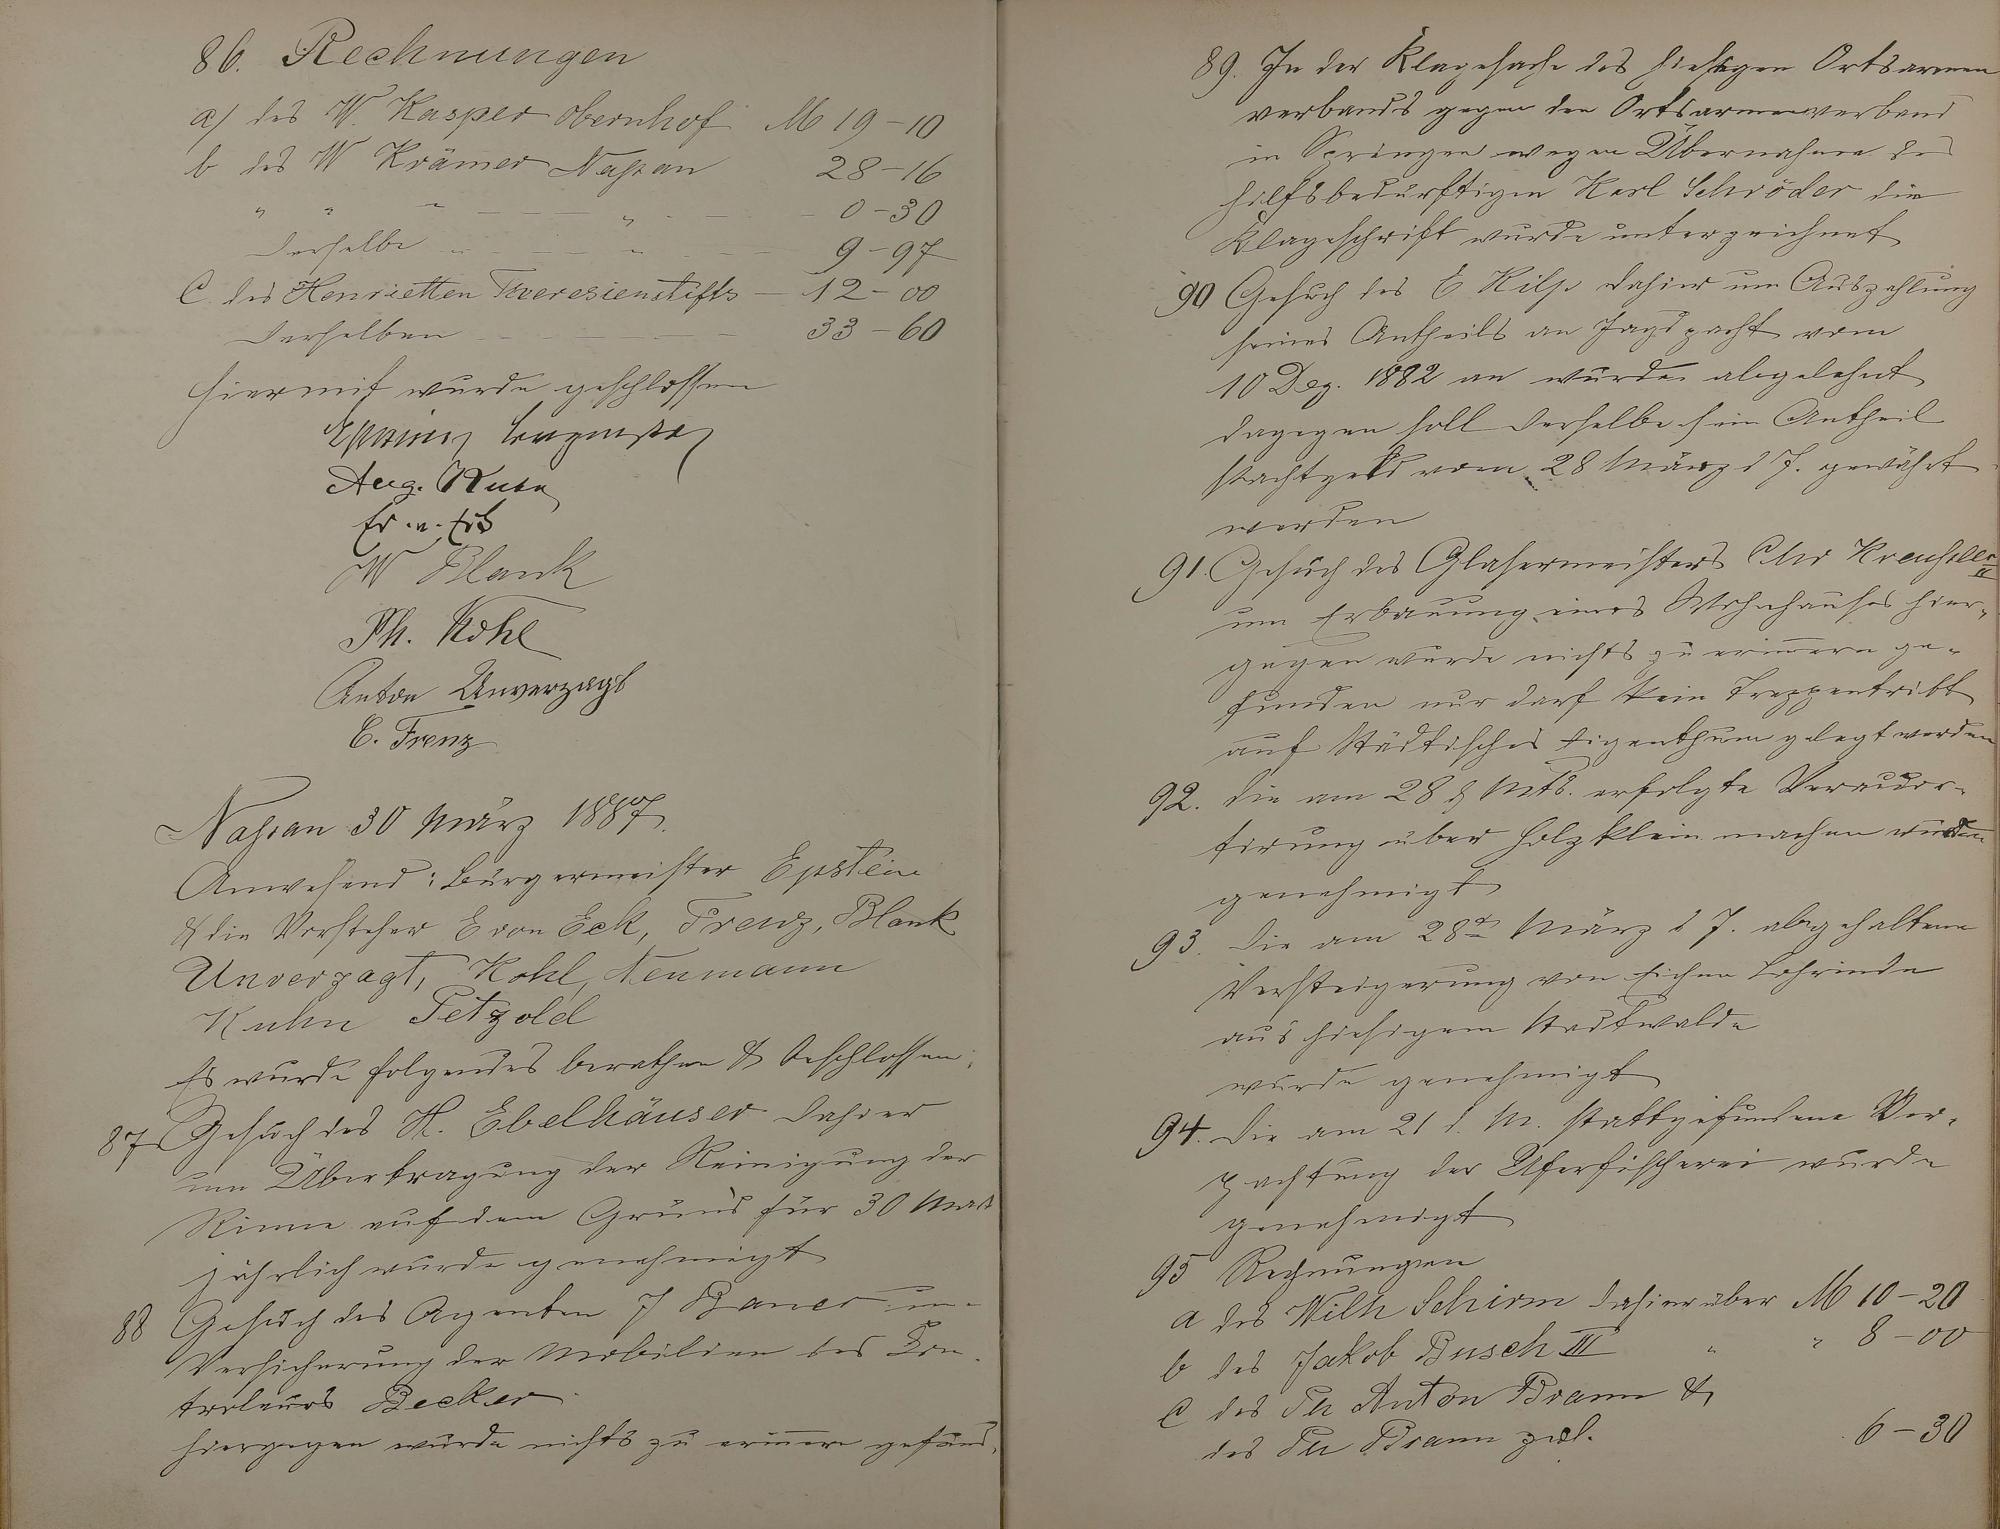 86. Rechnungen
a) des W. Kasper Obernhof M 19-10
b des W Krämer Nassau 28-16
" " " — — — " — — — 0-30
Derselbe " — — — " — — — 9-97
C. des Henrietten Theresienstifts — 12-00
Derselben — — — — 33-60
Hiermit wurde geschlossen
Epstein, Bürgermstr
Aug. Kuhn
W Blank
Ph. Kohl
Anton Unverzagt
E. Frenz
Nassau 30 März 1887.
Anwesend: Bürgermeister Epstein
& die Vorsteher E von Eck, Frenz, Blank
Unverzagt, Kohl, Neumann
Kuhn Petzold
Es wurde folgendes berathen & beschlossen:
87 Gesuch des H. Ebelhäuser dahier
um Übertragung der Reinigung der
Rinne auf dem Grund für 30 Mark
jährlich wurde genehmigt
88 Gesuch des Agenten J Bauer um
Versicherung der Mobilien des Con-
troleurs Becker
hiergegen wurde nichts zu erinnern gefund.
89. In der Klagesache des hiesigen Ortsarmen
verbands gegen den Ortsarmenverband
in Springen wegen Übernahme des
hilfsbedürftigen Karl Schröder die
Klageschrift wurde unterzeichnet
90 Gesuch des E Kilp dahier um Auszahlung
seines Antheils an Jagdpacht vom
10 Dez. 1882 an wurde abgelehnt
dagegen soll derselbe sein Antheil
Pachtgeld vom 28 März d J. gewährt
werden
91. Gesuch des Glasermeisters Chr Kreuseler II
um Erbauung eines Wohnhauses hier-
gegen wurde nichts zu erinnern ge-
funden nur darf kein Treppentritt
auf Städtisches Eigenthum gelegt werden
92. Die am 28 d Mts. erfolgte Veraccor-
tirung über Holzklein machen wurde
genehmigt
93. Die am 28ten März d J. abgehaltene
Versteigerung von Eichen Lohrinde
aus hiesigem Stadtwalde
wurde genehmigt
94. Die am 21 d. M. stattgefundene Ver-
pachtung der Uferfischerei wurde
genehmigt
95 Rechnungen
a des Wilh Schirm dahier über M 10-20
b des Jakob Busch III " " 8-00
C des Ph Anton Braun &
des Ph Braun zus. 6-30